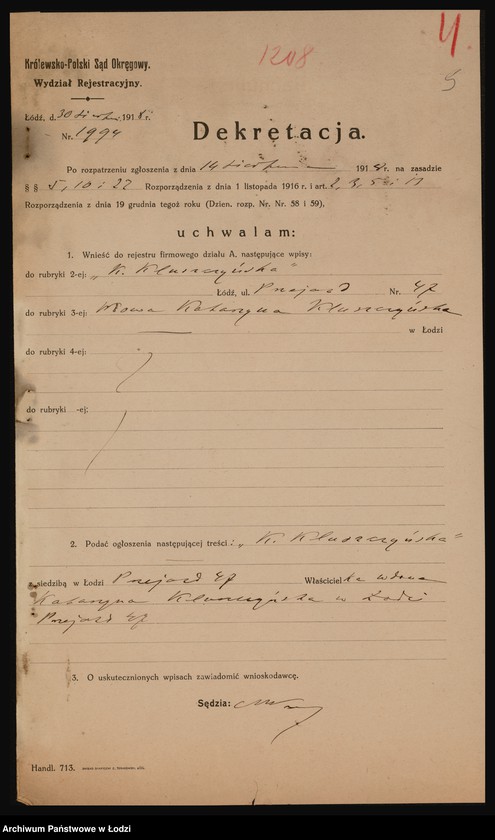 4
1208
5
Królewsko-Polski Sąd Okręgowy.
Wydział Rejestracyjny.
Łódź, d. 30 sierpnia 1918 r.
Nr. 1994
Dekretacja.
Po rozpatrzeniu zgłoszenia z dnia 14 sierpnia 1918 r. na zasadzie
§ § 5, 10 i 22 Rozporządzenia z dnia 1 listopada 1916 r. i art. 2, 3, 5 i 11
Rozporządzenia z dnia 19 grudnia tegoż roku (Dzien. rozp. Nr. Nr. 58 i 59),
uchwalam:
1. Wnieść do rejestru firmowego działu A. następujące wpisy:
do rubryki 2-ej: „K. Kluszczyńska"
Łódź, ul. Przejazd Nr. 47
do rubryki 3-ej: Wdowa Katarzyna Kluszczyńska
w Łodzi
do rubryki 4-ej:
do rubryki -ej:
2. Podać ogłoszenia następującej treści: „K. Kluszczyńska"
z siedzibą w Łodzi Przejazd 47 Właścicielka wdowa
Katarzyna Kluszczyńska w Łodzi
Przejazd 47
3. O uskutecznionych wpisach zawiadomić wnioskodawcę.
Sędzia:
Handl. 713.
Archiwum Państwowe w Łodzi